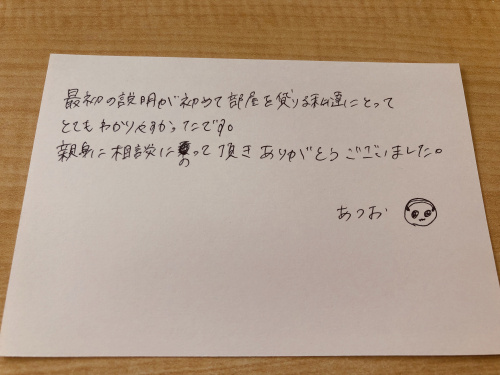 最初の説明が初めて部屋を貸りる私達にとって
とてもわかりやすかったです。
親身に相談にのって頂きありがとうございました。
あつお